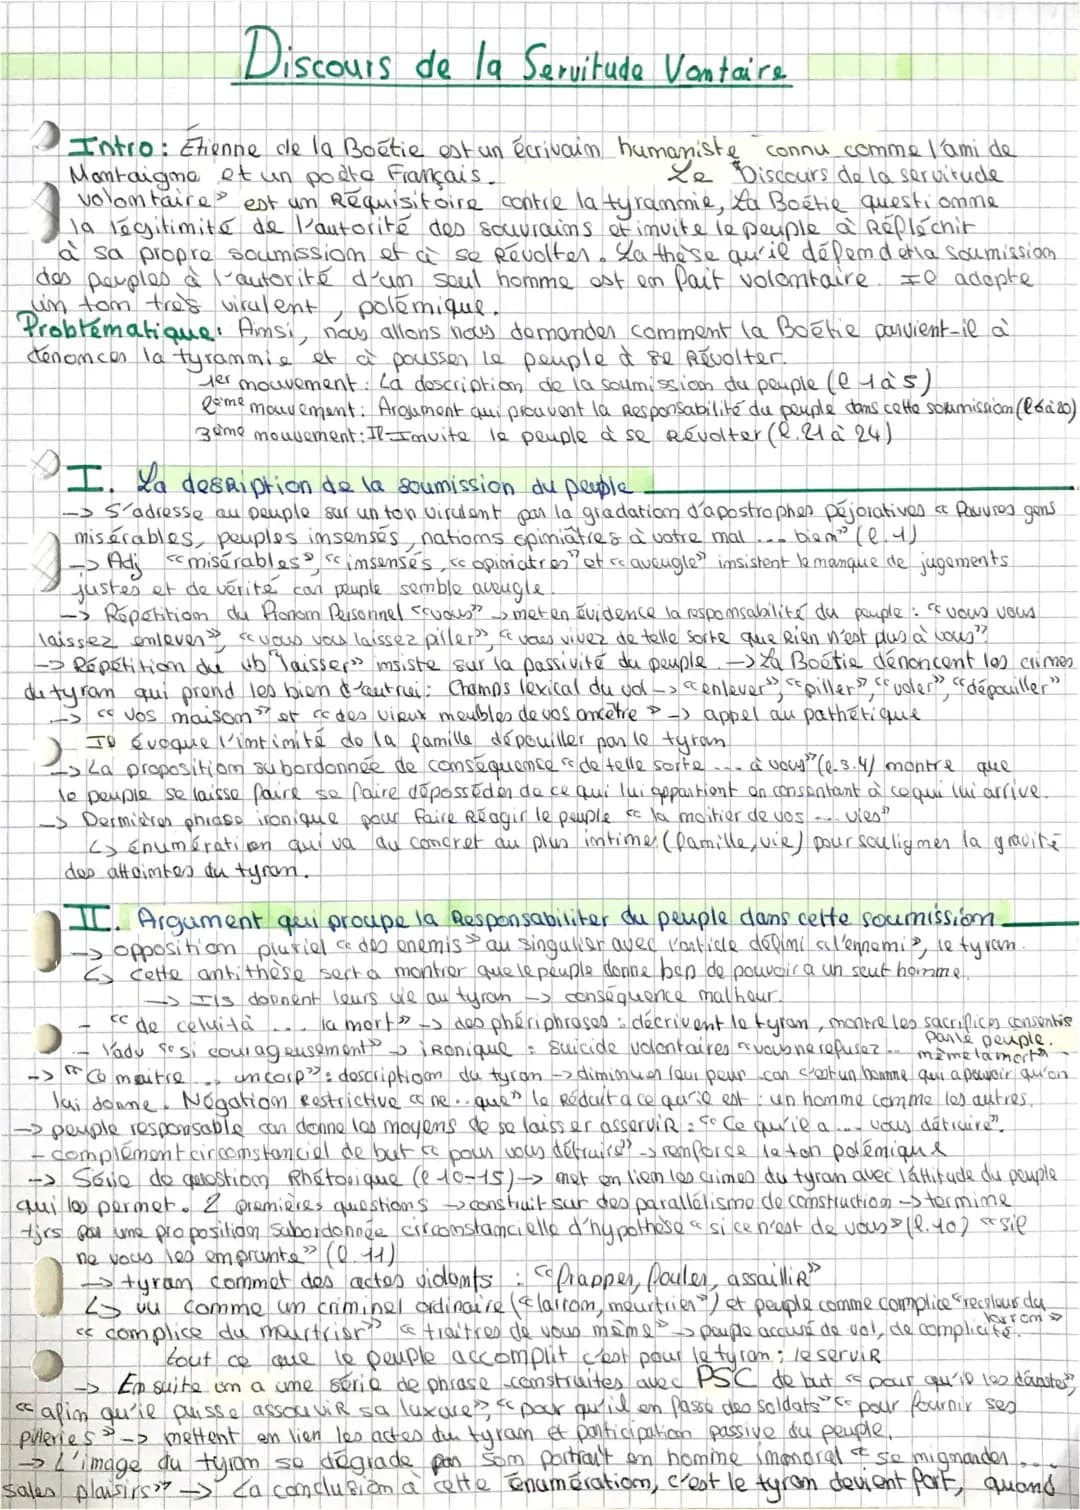 Discours de la Servitude Vontaire
Intro : Étienne de la Boétie est un écrivain humaniste connu comme l'ami de
Montaigne et un poète Français. Le "Discours de la servitude
volontaire" est un Réquisitoire contre la tyrannie, La Boétie questionne
la légitimité de l'autorité des souverains et invite le peuple à Réfléchir
à sa propre soumission et à se Révolter. La thèse qu'il défend et la soumission
des peuples à l'autorité d'un seul homme est en fait volontaire. Il adopte
un ton très virulent, polémique.
Problématique : Ainsi, nous allons nous demander comment la Boétie parvient-il à
dénoncer la tyrannie et à pousser le peuple à se Révolter.
1er mouvement : La description de la soumission du peuple (l 1 à 5)
2ème mouvement : Argument qui prouvent la Responsabilité du peuple dans cette soumission (l 6 à 20)
3ème mouvement : Il Invite le peuple à se Révolter (l. 21 à 24)
I. La desRiption de la soumission du peuple
-> S'adresse au peuple sur un ton virulent par la gradation d'apostrophes péjoratives « Pauvres gens
misérables, peuples insensés, nations opiniâtres à votre mal ... bien" (l. 1)
-> Adj « misérables », « insensés, « opiniatres" et « aveugle » insistent le manque de jugements
justes et de vérité car peuple semble aveugle.
-> Répétition du Pronom Personnel « vous" -> met en Évidence la responsabilité du peuple : « vous vous
laissez enlever », « vous vous laissez piller », « vous vivez de telle sorte que Rien n'est plus à vous"
-> Répétition du vb "laisser » insiste sur la passivité du peuple. -> La Boétie dénoncent les crimes
du tyran qui prend les bien d'autrui : Champs lexical du vol -> « enlever », « piller », « voler », « dépouiller"
-> « vos maison" et « des vieux meubles de vos ancêtre » -> appel au pathétique
Il évoque l'intimité de la famille dépouiller par le tyran
-> La proposition subordonnée de conséquence « de telle sorte ... à vous" (l. 3.4) montre que
le peuple se laisse faire se faire déposséder de ce qui lui appartient en consentant à ce qui lui arrive.
-> Dernières phrase ironique pour faire Réagir le peuple « la moitier de vos ... vies"
↳ énumération qui va du concret au plus intime (famille, vie) pour souligner la gravité
des atteintes du tyran.
II. Argument qui proupe la Responsabiliter du peuple dans cette soumission
-> opposition pluriel « des enemis » au singulier avec l'article défini « l'ennemi », le tyran.
↳ cette antithèse sert a montrer que le peuple donne bcp de pouvoir a un seul homme.
-> Ils donnent leurs vie au tyran -> conséquence malheur.
- « de celui là ... la mort » -> des phériphrases : décrivent le tyran, montre les sacrifices consentis
par le peuple.
- l'adv « si courageusement » -> iRonique : Suicide volontaires « vous ne refusez ... même la mort"
-> « Ce maitre ... un corp » : description du tyran -> diminuer leur peur car c'est un homme qui a pouvoir qu'on
lui donne. Négation Restrictive « ne .. que" le Réduit a ce qu'il est : un homme comme les autres.
-> peuple responsable car donne les moyens de se laisser asserviR : « Ce qu'il a ... vous détruire".
- complément circonstanciel de but « pour vous détruire" -> renforce le ton polémique
-> Série de question Rhétorique (l 10-15) -> met en lien les crimes du tyran avec l'attitude du peuple
qui les permet. 2 premières questions -> construit sur des parallélisme de construction -> termine
tjrs par une proposition subordonnée circonstancielle d'hypothèse « si ce n'est de vous » (l. 10) « s'il
ne vous les emprunte » (l. 11)
-> tyran commet des actes violents : « frapper, fouler, assailliR"
↳ vu comme un criminel ordinaire (« larron, meurtrier") et peuple comme complice « receleur du
larron »
« complice du meurtrier" « traitres de vous même » -> peuple accusé de vol, de complicité.
tout ce que le peuple accomplit c'est pour le tyran ; le serviR
-> Ensuite on a une série de phrase construites avec PSC de but « pour qu'il les dévaste",
« afin qu'il puisse assouviR sa luxure », « pour qu'il en fasse des soldats" « pour fournir ses
pilleries » -> mettent en lien les actes du tyran et participation passive du peuple.
-> L'image du tyran se dégrade par son portrait en homme immoral « se mignarder ...
sales plaisirs" -> La conclusion à cette énumération, c'est le tyran devient fort, quand